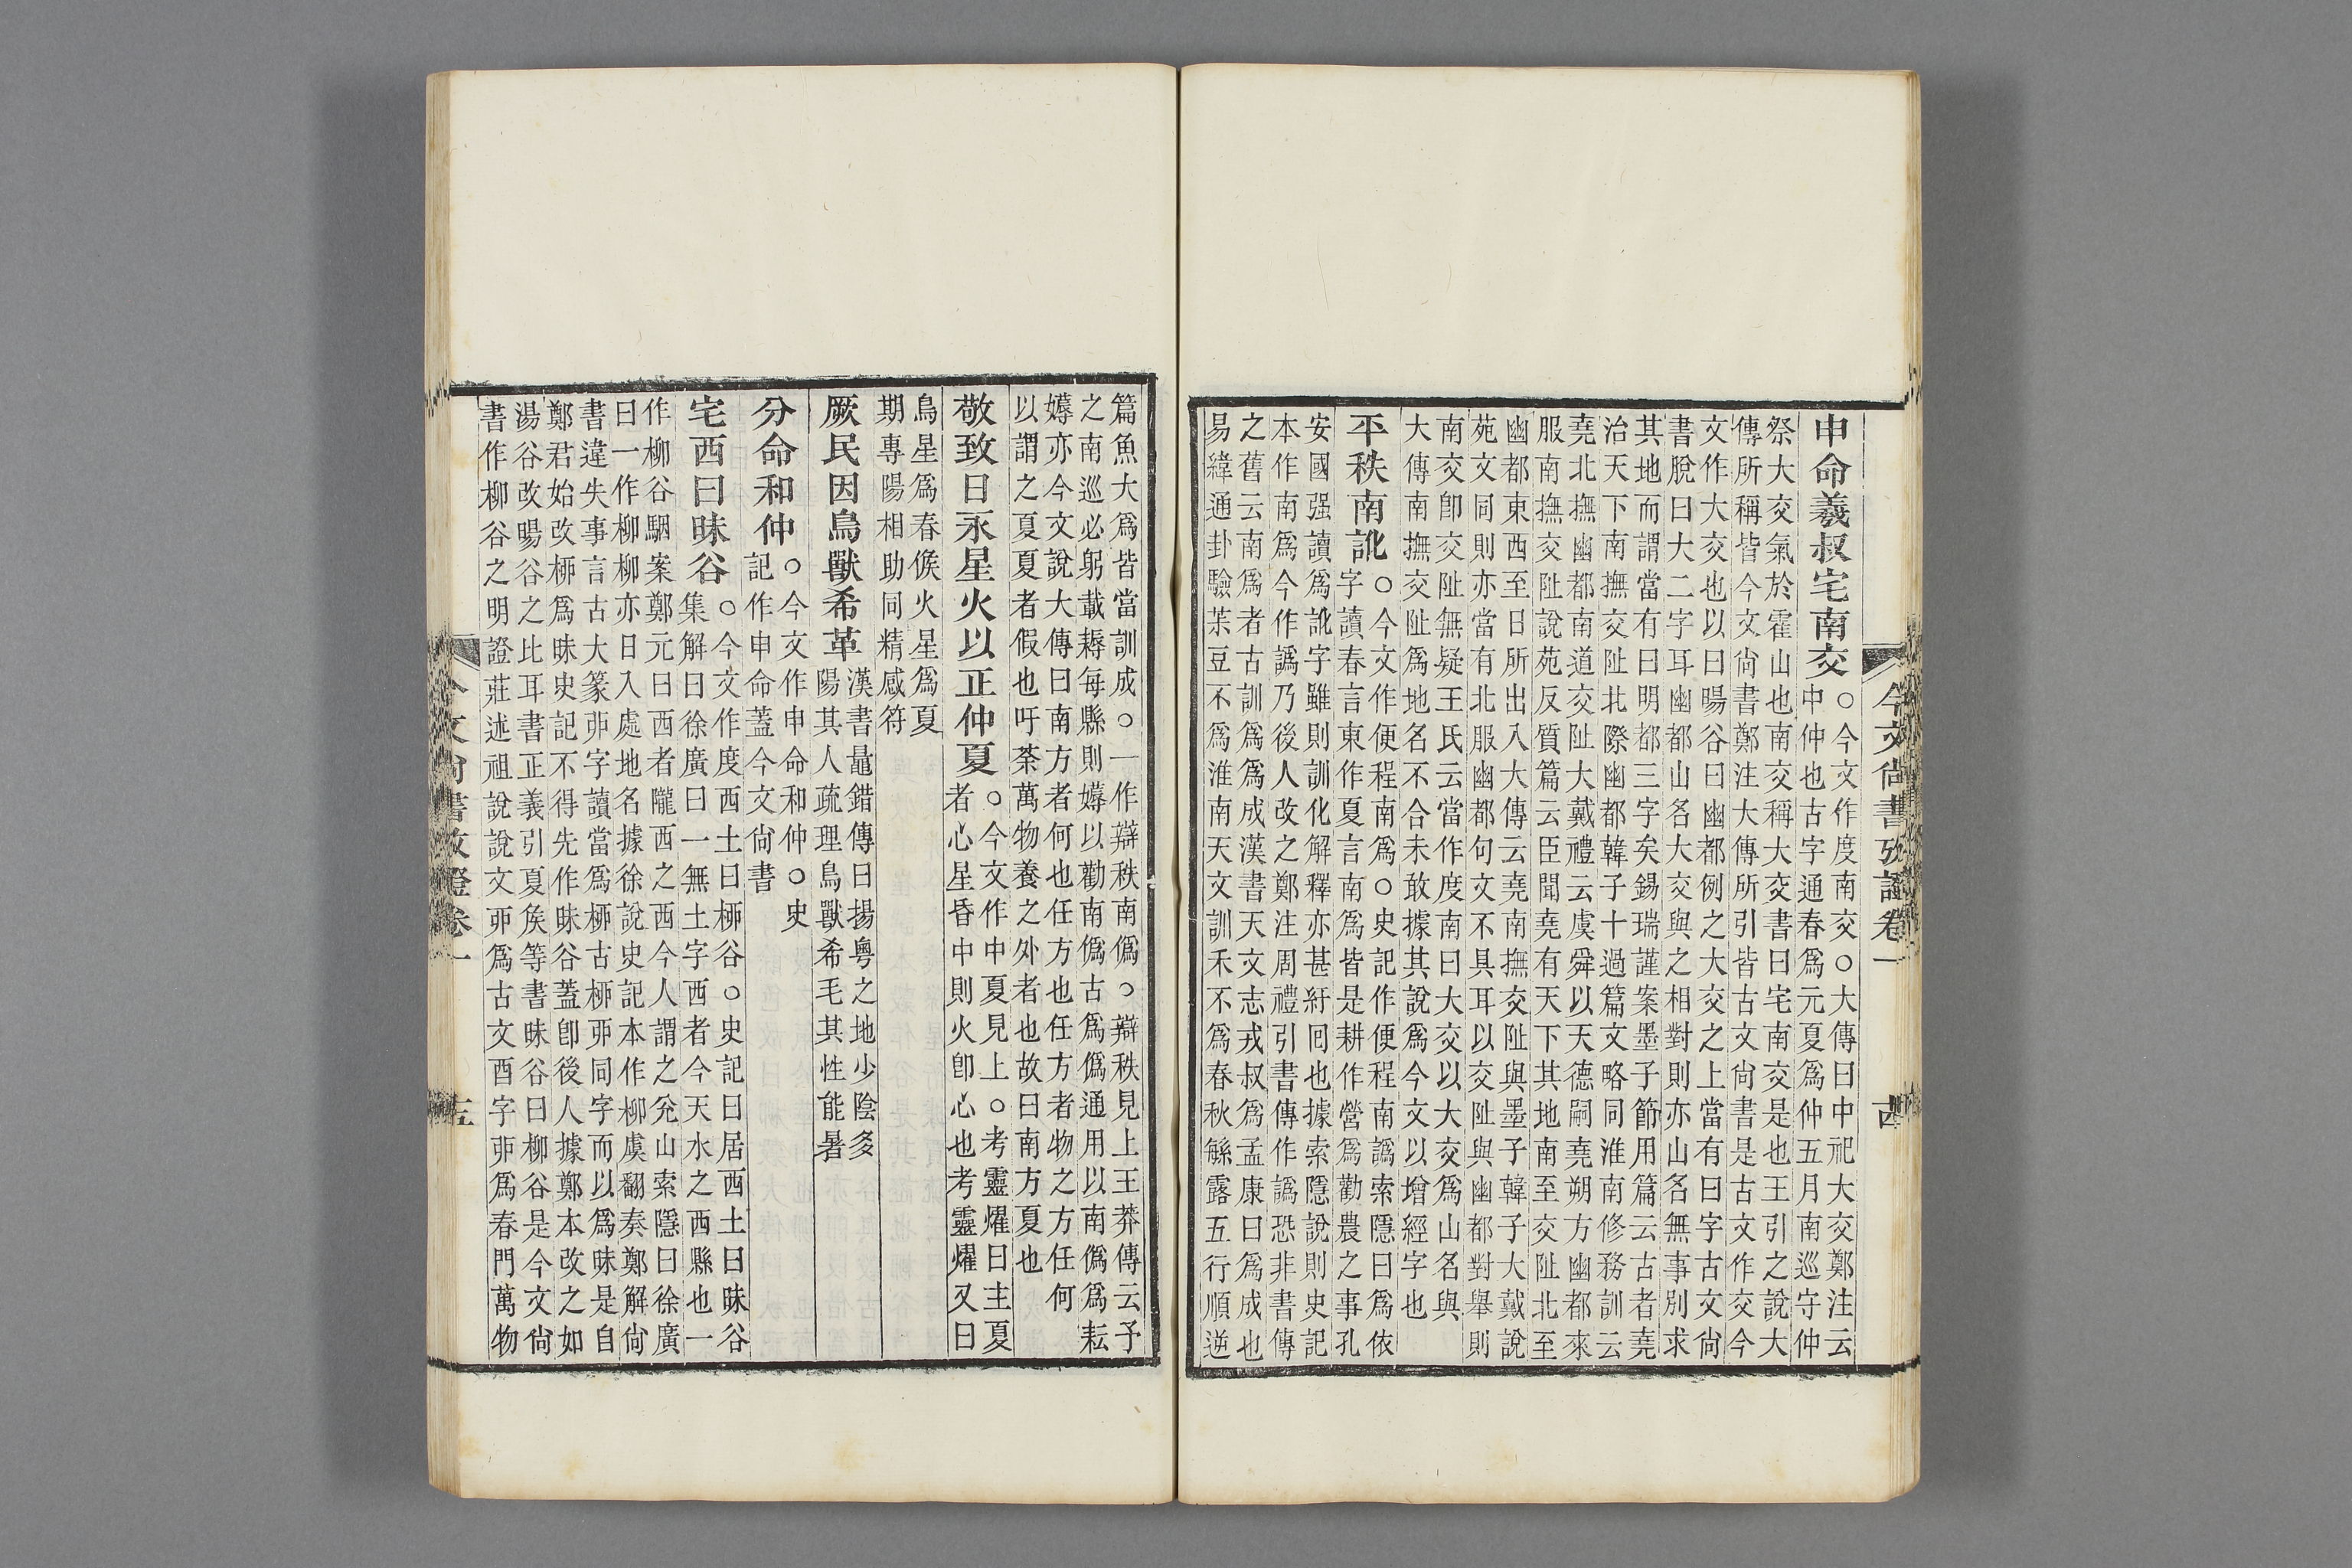 今文尚書攷證卷一
古
申命羲叔宅南交○今文作度南交○大傳曰中祀大交鄭注云
中仲也古字通春爲元夏爲仲五月南巡守仲
祭大交氣於霍山也南交稱大交書曰宅南交是也王引之說大
傳所稱皆今文尚書鄭注大傳所引皆古文尚書是古文作交今
文作大交也以曰暘谷曰幽都例之大交之上當有曰字古文尚
書脫曰大二字耳幽都山名大交與之相對則亦山名無事別求
其地而謂當有曰明都三字矣錫瑞謹案墨子節用篇云古者堯
治天下南撫交阯北際幽都韓子十過篇文略同淮南修務訓云
堯北撫幽都南道交阯大戴禮云虞舜以天德嗣堯朔方幽都來
服南撫交阯說苑反質篇云臣聞堯有天下其地南至交阯北至
幽都東西至日所出入大傳云堯南撫交阯與墨子韓子大戴說
苑文同則亦當有北服幽都句文不具耳以交阯與幽都對舉則
南交卽交阯無疑王氏云當作度南曰大交以大交爲山名與
大傳南撫交阯爲地名不合未敢據其說爲今文以增經字也
平秩南訛○今文作便程南爲○史記作便程南譌索隱曰爲依
字讀春言東作夏言南爲皆是耕作營爲勸農之事孔
安國强讀爲訛字雖則訓化解釋亦甚紆回也據索隱說則史記
本作南爲今作譌乃後人改之鄭注周禮引書傳作譌恐非書傳
之舊云南爲者古訓爲爲成漢書天文志戎叔爲孟康曰爲成也
易緯通卦驗菽豆不爲淮南天文訓禾不爲春秋繇露五行順逆
篇魚大爲皆當訓成○一作辯秩南僞○辯秩見上王莽傳云予
之南巡必躬載耨每縣則薅以勸南僞古爲僞通用以南僞爲耘
薅亦今文說大傳曰南方者何也任方也任方者物之方任何
以謂之夏夏者假也吁荼萬物養之外者也故曰南方夏也
敬致日永星火以正仲夏○今文作中夏見上○考靈燿曰主夏
者心星昏中則火卽心也考靈燿又曰
鳥星爲春候火星爲夏
期專陽相助同精感符
厥民因鳥獸希革漢書鼂錯傳曰揚粵之地少陰多
陽其人疏理鳥獸希毛其性能暑
分命和仲○今文作申命和仲○史
記作申命蓋今文尚書
宅西曰昧谷○今文作度西土曰桺谷○史記曰居西土曰昧谷
集解曰徐廣曰一無土字西者今天水之西縣也一
作柳谷駰案鄭元曰西者隴西之西今人謂之兊山索隱曰徐廣
曰一作柳柳亦日入處地名據徐說史記本作柳虞翻奏鄭解尚
書違失事言古大篆丣字讀當爲桺古桺丣同字而以爲昧是自
鄭君始改桺爲昧史記不得先作昧谷蓋卽後人據鄭本改之如
湯谷改暘谷之比耳書正義引夏矦等書昧谷曰柳谷是今文尚
書作柳谷之明證莊述祖說說文丣爲古文酉字丣爲春門萬物
今文尚書攷證卷一
十五